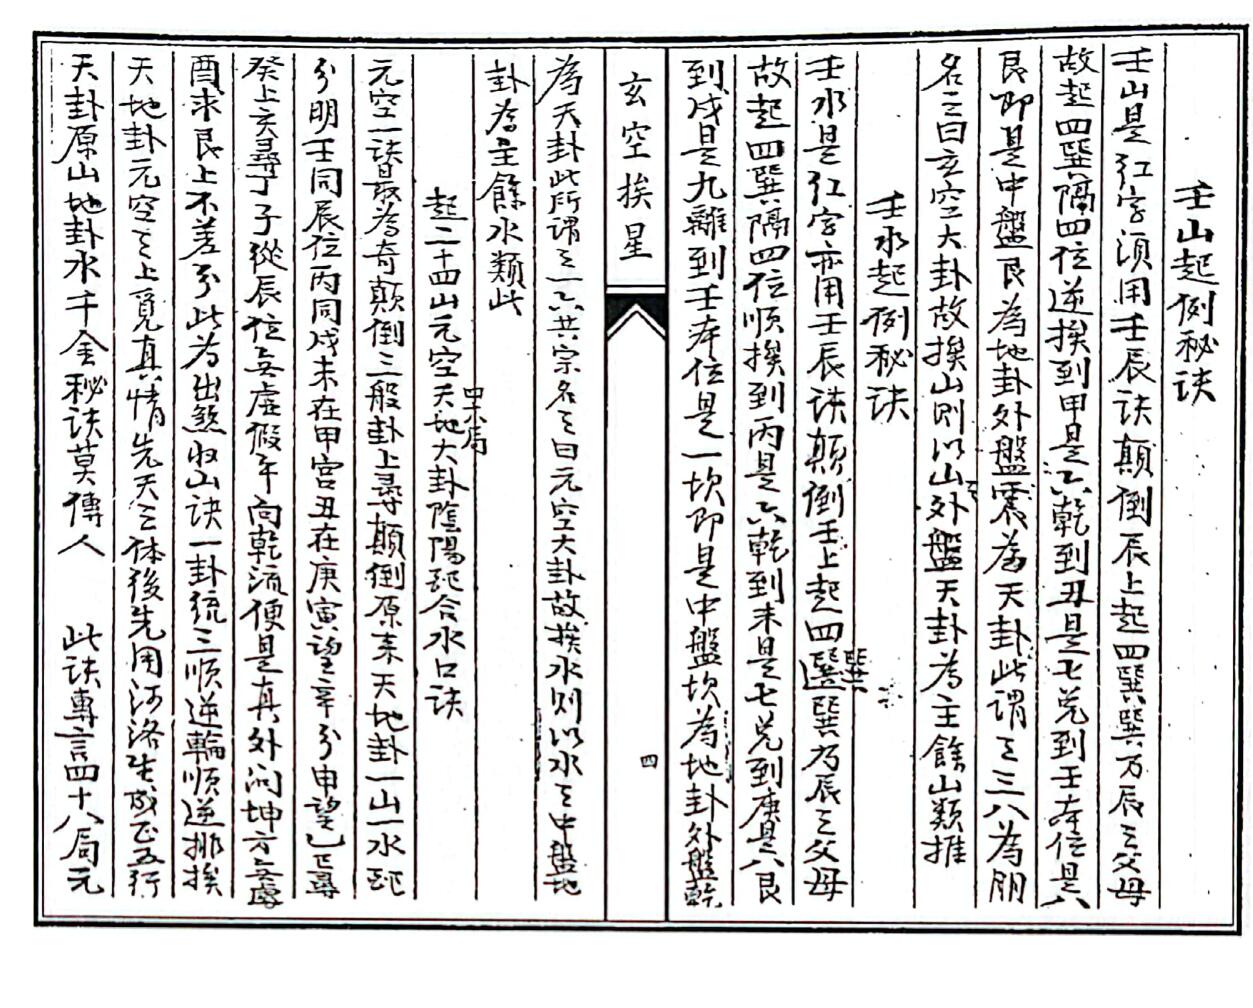 壬山起例秘诀
壬山是红字须用壬辰诀颠倒辰上起四巽巽乃辰之父母
故起四巽隔四位逆挨到甲是六乾到丑是七兑到壬本位是八
艮即是中盤艮為地卦外盤震為天卦此谓之三八為朋
名之曰玄空大卦故挨山则以山之外盤天卦為主餘山類推
壬水起例秘诀
壬水是红字亦用壬辰诀颠倒壬上起四巽巽乃辰之父母
故起四巽隔四位顺挨到丙是六乾到未是七兑到庚是八艮
到戌是九離到壬本位是一坎即是中盤坎為地卦外盤乾
玄空挨星
四
為天卦此所谓之一六共宗名之曰元空大卦故挨水则以水之中盤地
卦為主餘水類此
起二十四山元空天地大卦陰陽配合水口诀
元空一诀最為奇颠倒三般卦上尋颠倒原来天地卦一山一水配
分明壬同辰位丙同戌未在甲宫丑在庚寅望辛分申望乙巳尋
癸上亥尋丁子從辰位无虚假午向乾流便是真外问坤方无處
酉求艮上不差分此为出煞收山诀一卦统三顺逆輪顺逆排挨
天地卦元空之上覓真情先天之体後先用河洛生成正五行
天卦原山地卦水千金秘诀莫傳人 此诀專言四十八局元